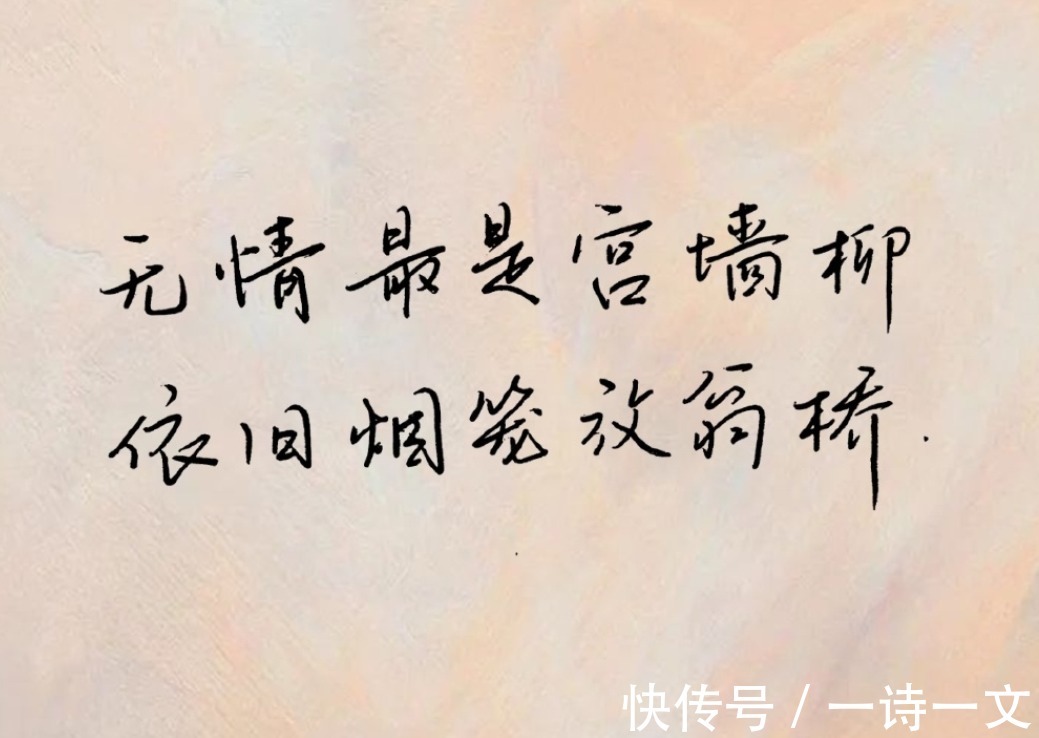 无情最是宫墙柳
依旧烟笼放翁桥.
快传号/一诗一文